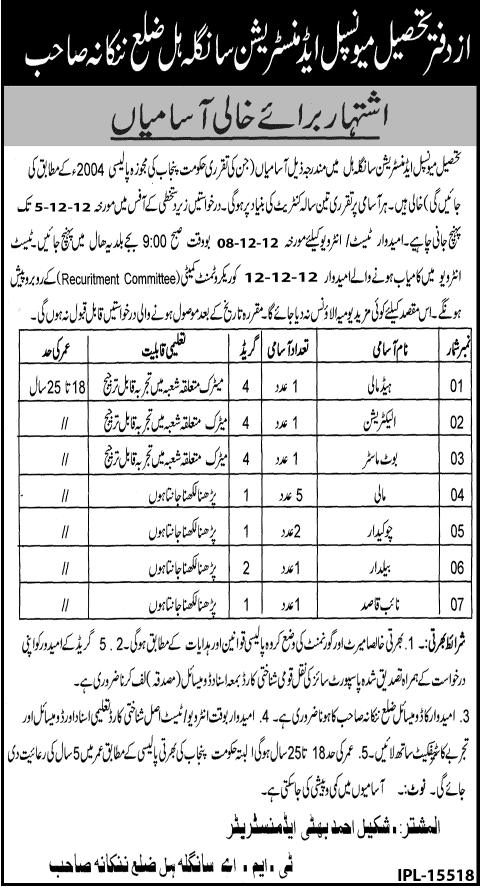 از دفتر تحصیل میونسپل ایڈمنسٹریشن سانگلہ ہل ضلع ننکانہ صاحب
اشتہار برائے خالی آسامیاں
تحصیل میونسپل ایڈمنسٹریشن سانگلہ ہل میں مندرجہ ذیل آسامیاں (جن کی تقرری حکومت پنجاب کی مجوزہ پالیسی 2004ء کے مطابق کی
جائیں گی) خالی ہیں۔ ہر آسامی پر تقرری تین سالہ کنٹریٹ کی بنیاد پر ہوگی۔ درخواستیں زیر دستخطی کے آفس میں مورخہ 5-12-12 تک
پہنچ جانی چاہیے۔ امیدوار ٹیسٹ/انٹرویو کیلئے مورخہ 08-12-12 بوقت صبح 9:00 بجے بلدیہ ھال میں پہنچ جائیں۔ ٹیسٹ
انٹرویو میں کامیاب ہونے والے امیدوار 12-12-12 کو ریکروٹمنٹ کمیٹی (Recuritment Committee) کے روبرو پیش
ہونگے۔ اس مقصد کیلئے کوئی مزید یومیہ الاؤنس نہ دیا جائے گا۔ مقررہ تاریخ کے بعد موصول ہونے والی درخواستیں قابل قبول نہ ہوں گی۔
نمبر شمار نام آسامی تعداد آسامی گریڈ تعلیمی قابلیت عمر کی حد
01 ہیڈ مالی 1 عدد 4 میٹرک متعلقہ شعبہ میں تجربہ قابل ترجیح 18 تا 25 سال
02 الیکٹریشن 1 عدد 4 میٹرک متعلقہ شعبہ میں تجربہ قابل ترجیح //
03 بوٹ ماسٹر 1 عدد 4 میٹرک متعلقہ شعبہ میں تجربہ قابل ترجیح //
04 مالی 5 عدد 1 پڑھنا لکھنا جانتا ہوں //
05 چوکیدار 2 عدد 1 پڑھنا لکھنا جانتا ہوں //
06 بیلدار 1 عدد 2 پڑھنا لکھنا جانتا ہوں //
07 نائب قاصد 1 عدد 1 پڑھنا لکھنا جانتا ہوں //
شرائط بھرتی:۔ 1. بھرتی خالصا میرٹ اور گورنمنٹ کی وضع کردہ پالیسی قوانین اور ہدایات کے مطابق ہوگی۔ 2. 5 گریڈ کے امیدور کو اپنی
درخواست کے ہمراہ تصدیق شدہ پاسپورٹ سائز کی نقل قومی شناختی کارڈ بمعہ اسناد ڈومیسائل (مصدقہ) لف کرنا ضروری ہے۔
3. امیدوار کا ڈومیسائل ضلع ننکانہ صاحب کا ہونا ضروری ہے۔ 4. امیدوار بوقت انٹرویو/ٹیسٹ اصل شناختی کارڈ تعلیمی اسناد اور ڈومیسائل اور
تجربے کا سٹیفکیٹ ساتھ لائیں۔ 5. عمر کی حد 18 تا 25 سال ہوگی البتہ حکومت پنجاب کی بھرتی پالیسی کے مطابق عمر میں 5 سال کی رعائیت دی
جائے گی۔ نوٹ:۔ آسامیوں میں کمی و پیشی کی جا سکتی ہے۔
المشتہر:۔ شکیل احمد بھٹی ایڈمنسٹریٹر
ٹی۔ ایم۔ اے سانگلہ ہل ضلع ننکانہ صاحب
IPL-15518